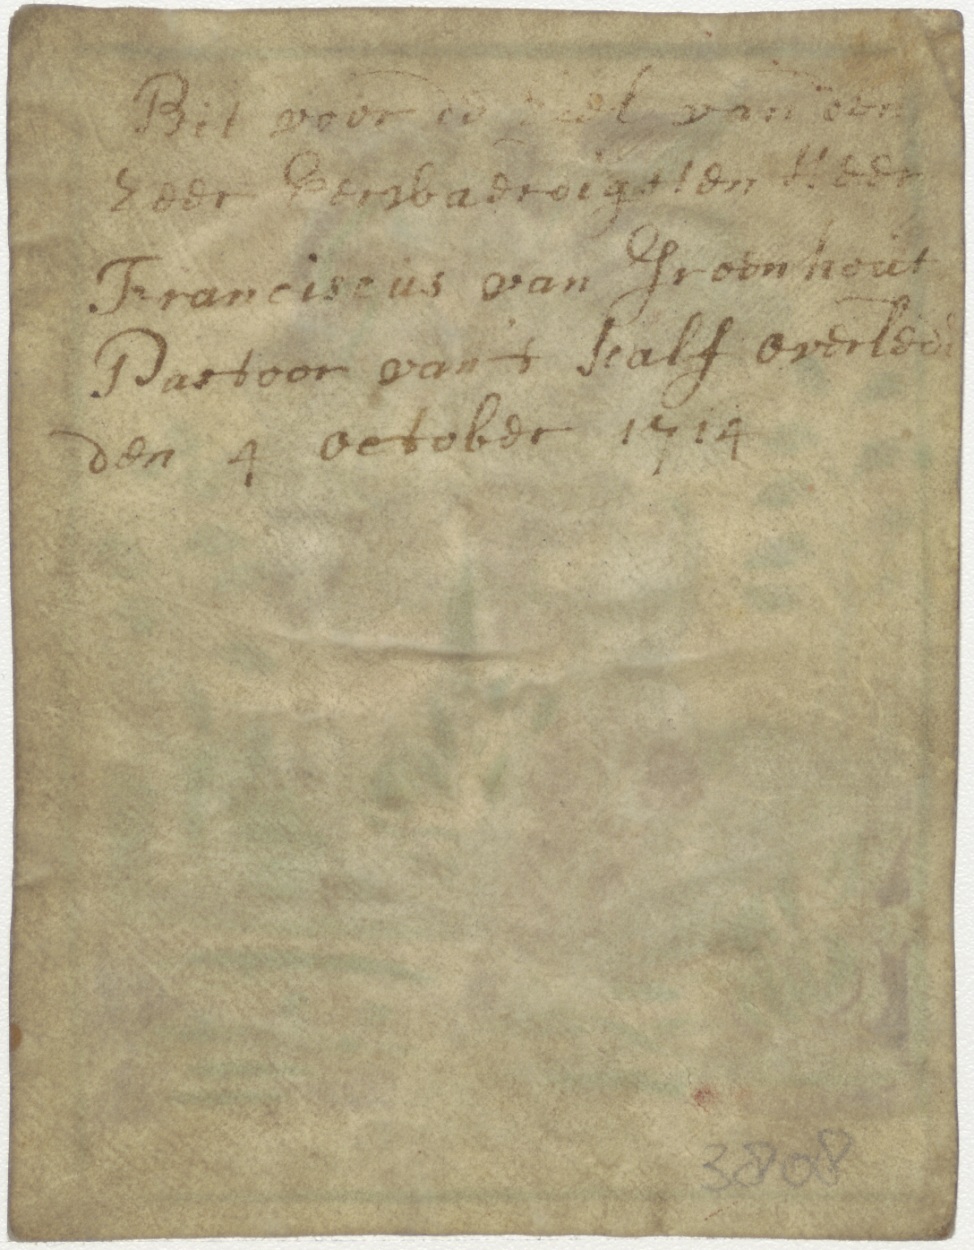 Bit voor de ziel van den
Zeer Eerwaerdigsten Heer
Franciscus van Groenhout
Pastoor van't kalf overleden
den 4 october 1714
3808